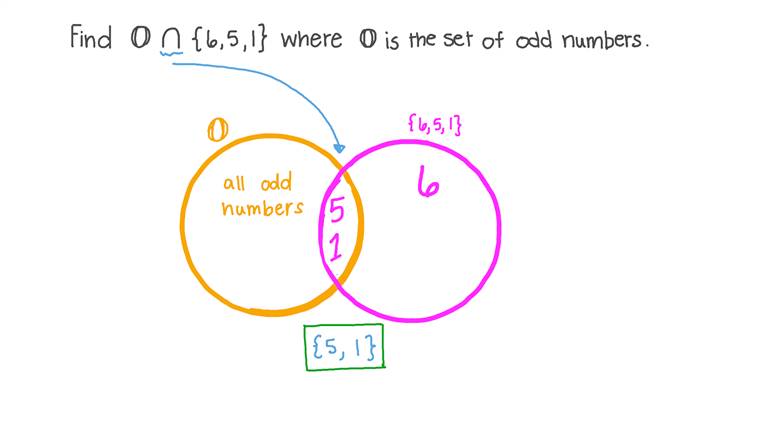 Find 𝕆 ∩ {6,5,1} where 𝕆 is the set of odd numbers.
{6,5,1}
𝕆
all odd
numbers
6
5
1
{5, 1}